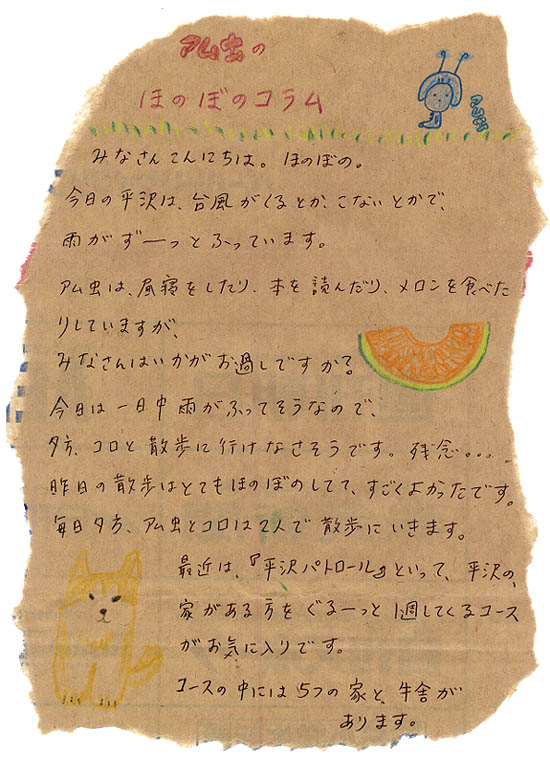 アム虫の
ほのぼのコラム
みなさんこんにちは。ほのぼの。
今日の平沢は、台風がくるとか、こないとかで、
雨がずーっとふっています。
アム虫は、昼寝をしたり、本を読んだり、メロンを食べた
りしていますが、
みなさんはいかがお過しですか?
今日は一日中雨がふってそうなので、
夕方、コロと散歩に行けなさそうです。残念。。。
昨日の散歩はとてもほのぼのしてて、すごくよかったです。
毎日夕方、アム虫とコロは2人で散歩にいきます。
最近は、『平沢パトロール』といって、平沢の、
家がある方をぐるーっと1週してくるコース
がお気に入りです。
コースの中には5つの家と、牛舎が
あります。